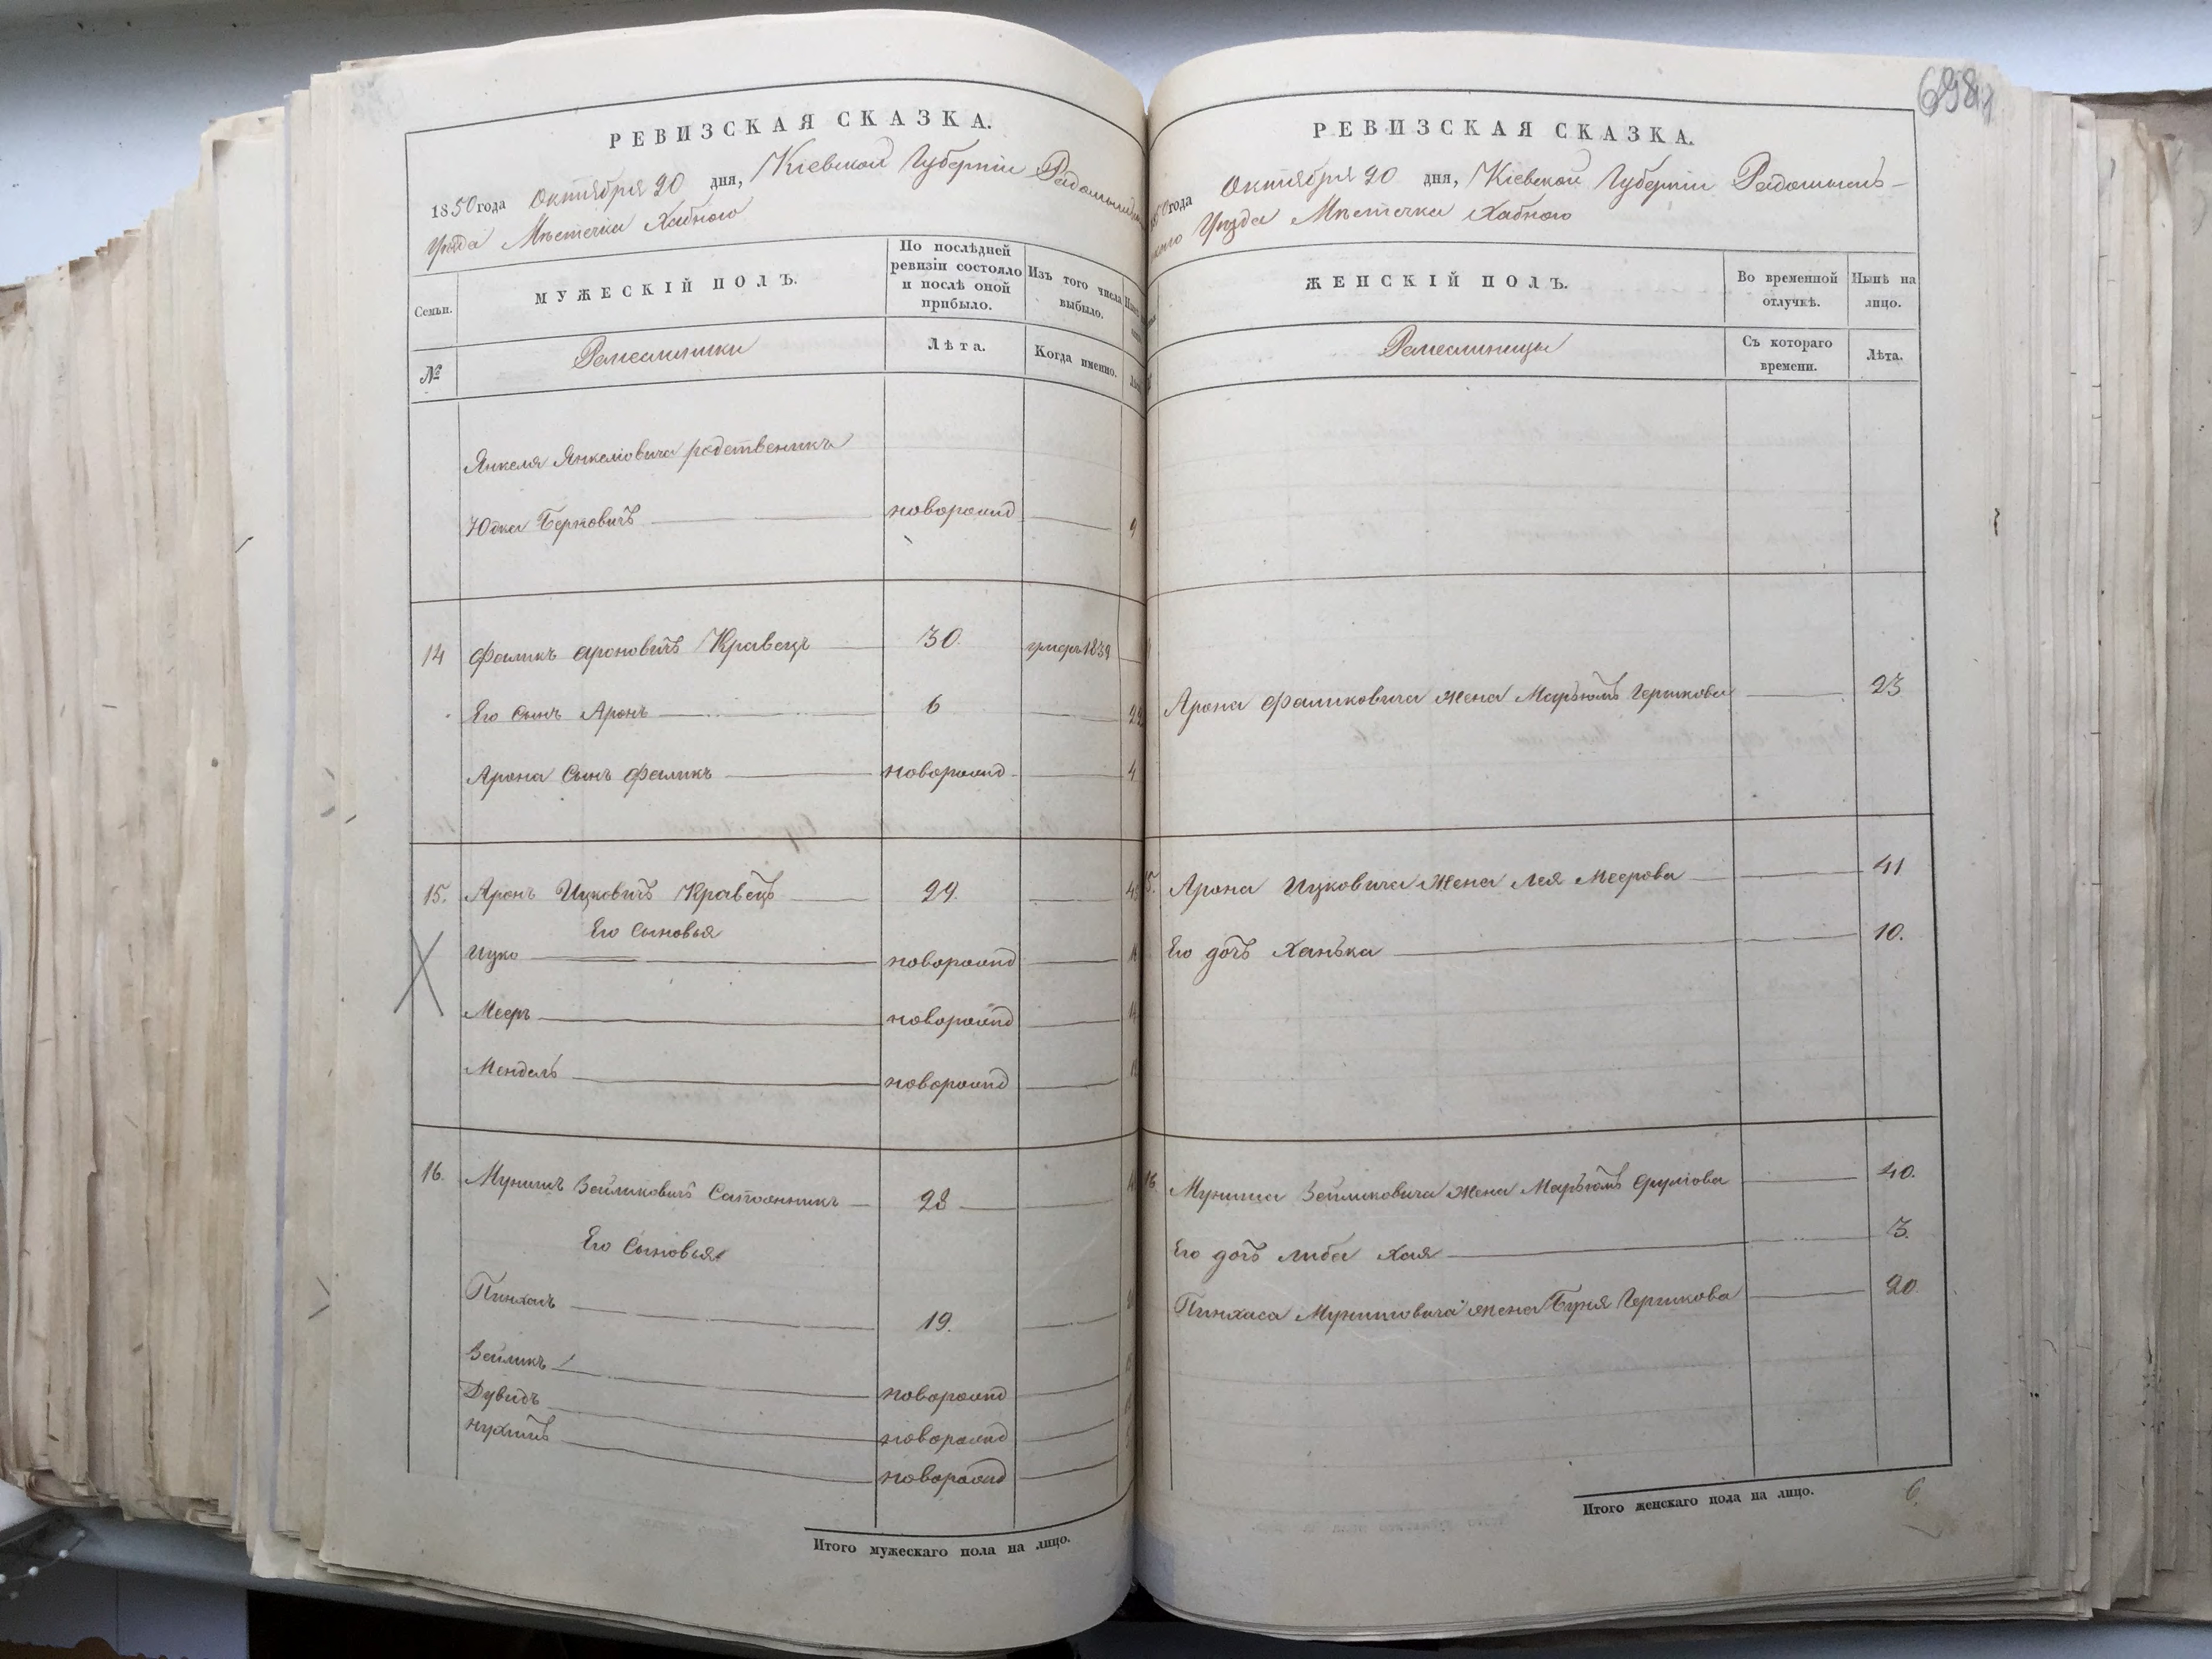 РЕВИЗСКАЯ СКАЗКА.
1850 года Октября 20 дня, Кіевской Губерніи
Уезда Мѣстечка Хабного
Семьи.
МУЖЕСКІЙ ПОЛЪ.
По послѣдней
ревизіи состояло
и послѣ оной
прибыло.
Изъ того числа
выбыло.
№
Ремеслники
Лѣта.
Когда именно.
Янкеля Янкеліовича родственикъ
Юдка Берковичъ новорожд 9
14 Фаликъ Ароновичъ Кравецъ 30. умеръ 1839
Его Сынъ Аронъ 6
Арона Сынъ Фаликъ новорожд 4
15. Аронъ Ицковичъ Кравецъ 29.
Его Сыновья
Ицко новорожд
Мееръ новорожд
Мендель новорожд
16. Мунишъ Зейликовичъ Сапожникъ 28
Его Сыновья
Пинхасъ 19.
Зейликъ новорожд
Дувидъ новорожд
Нухимъ новорожд
Итого мужескаго пола на лицо.
698
РЕВИЗСКАЯ СКАЗКА.
года Октября 20 дня, Кіевской Губерніи Радомысль-
скаго Уезда Мѣстечка Хабного
ЖЕНСКІЙ ПОЛЪ.
Во временной
отлучкѣ.
Нынѣ на
лицо.
Ремеслницы
Съ котораго
времени.
Лѣта.
Арона Фаликовича жена Марьямъ Гершкова 23
15. Арона Ицковича жена Лея Меерова 41
Его дочь Ханька 10.
16. Муниша Зейликовича жена Марьямъ Сруліова 40.
Его дочь Либа Хая 3.
Пинхаса Мунишовича жена Буня Гершкова 20.
Итого женскаго пола на лицо.
6.